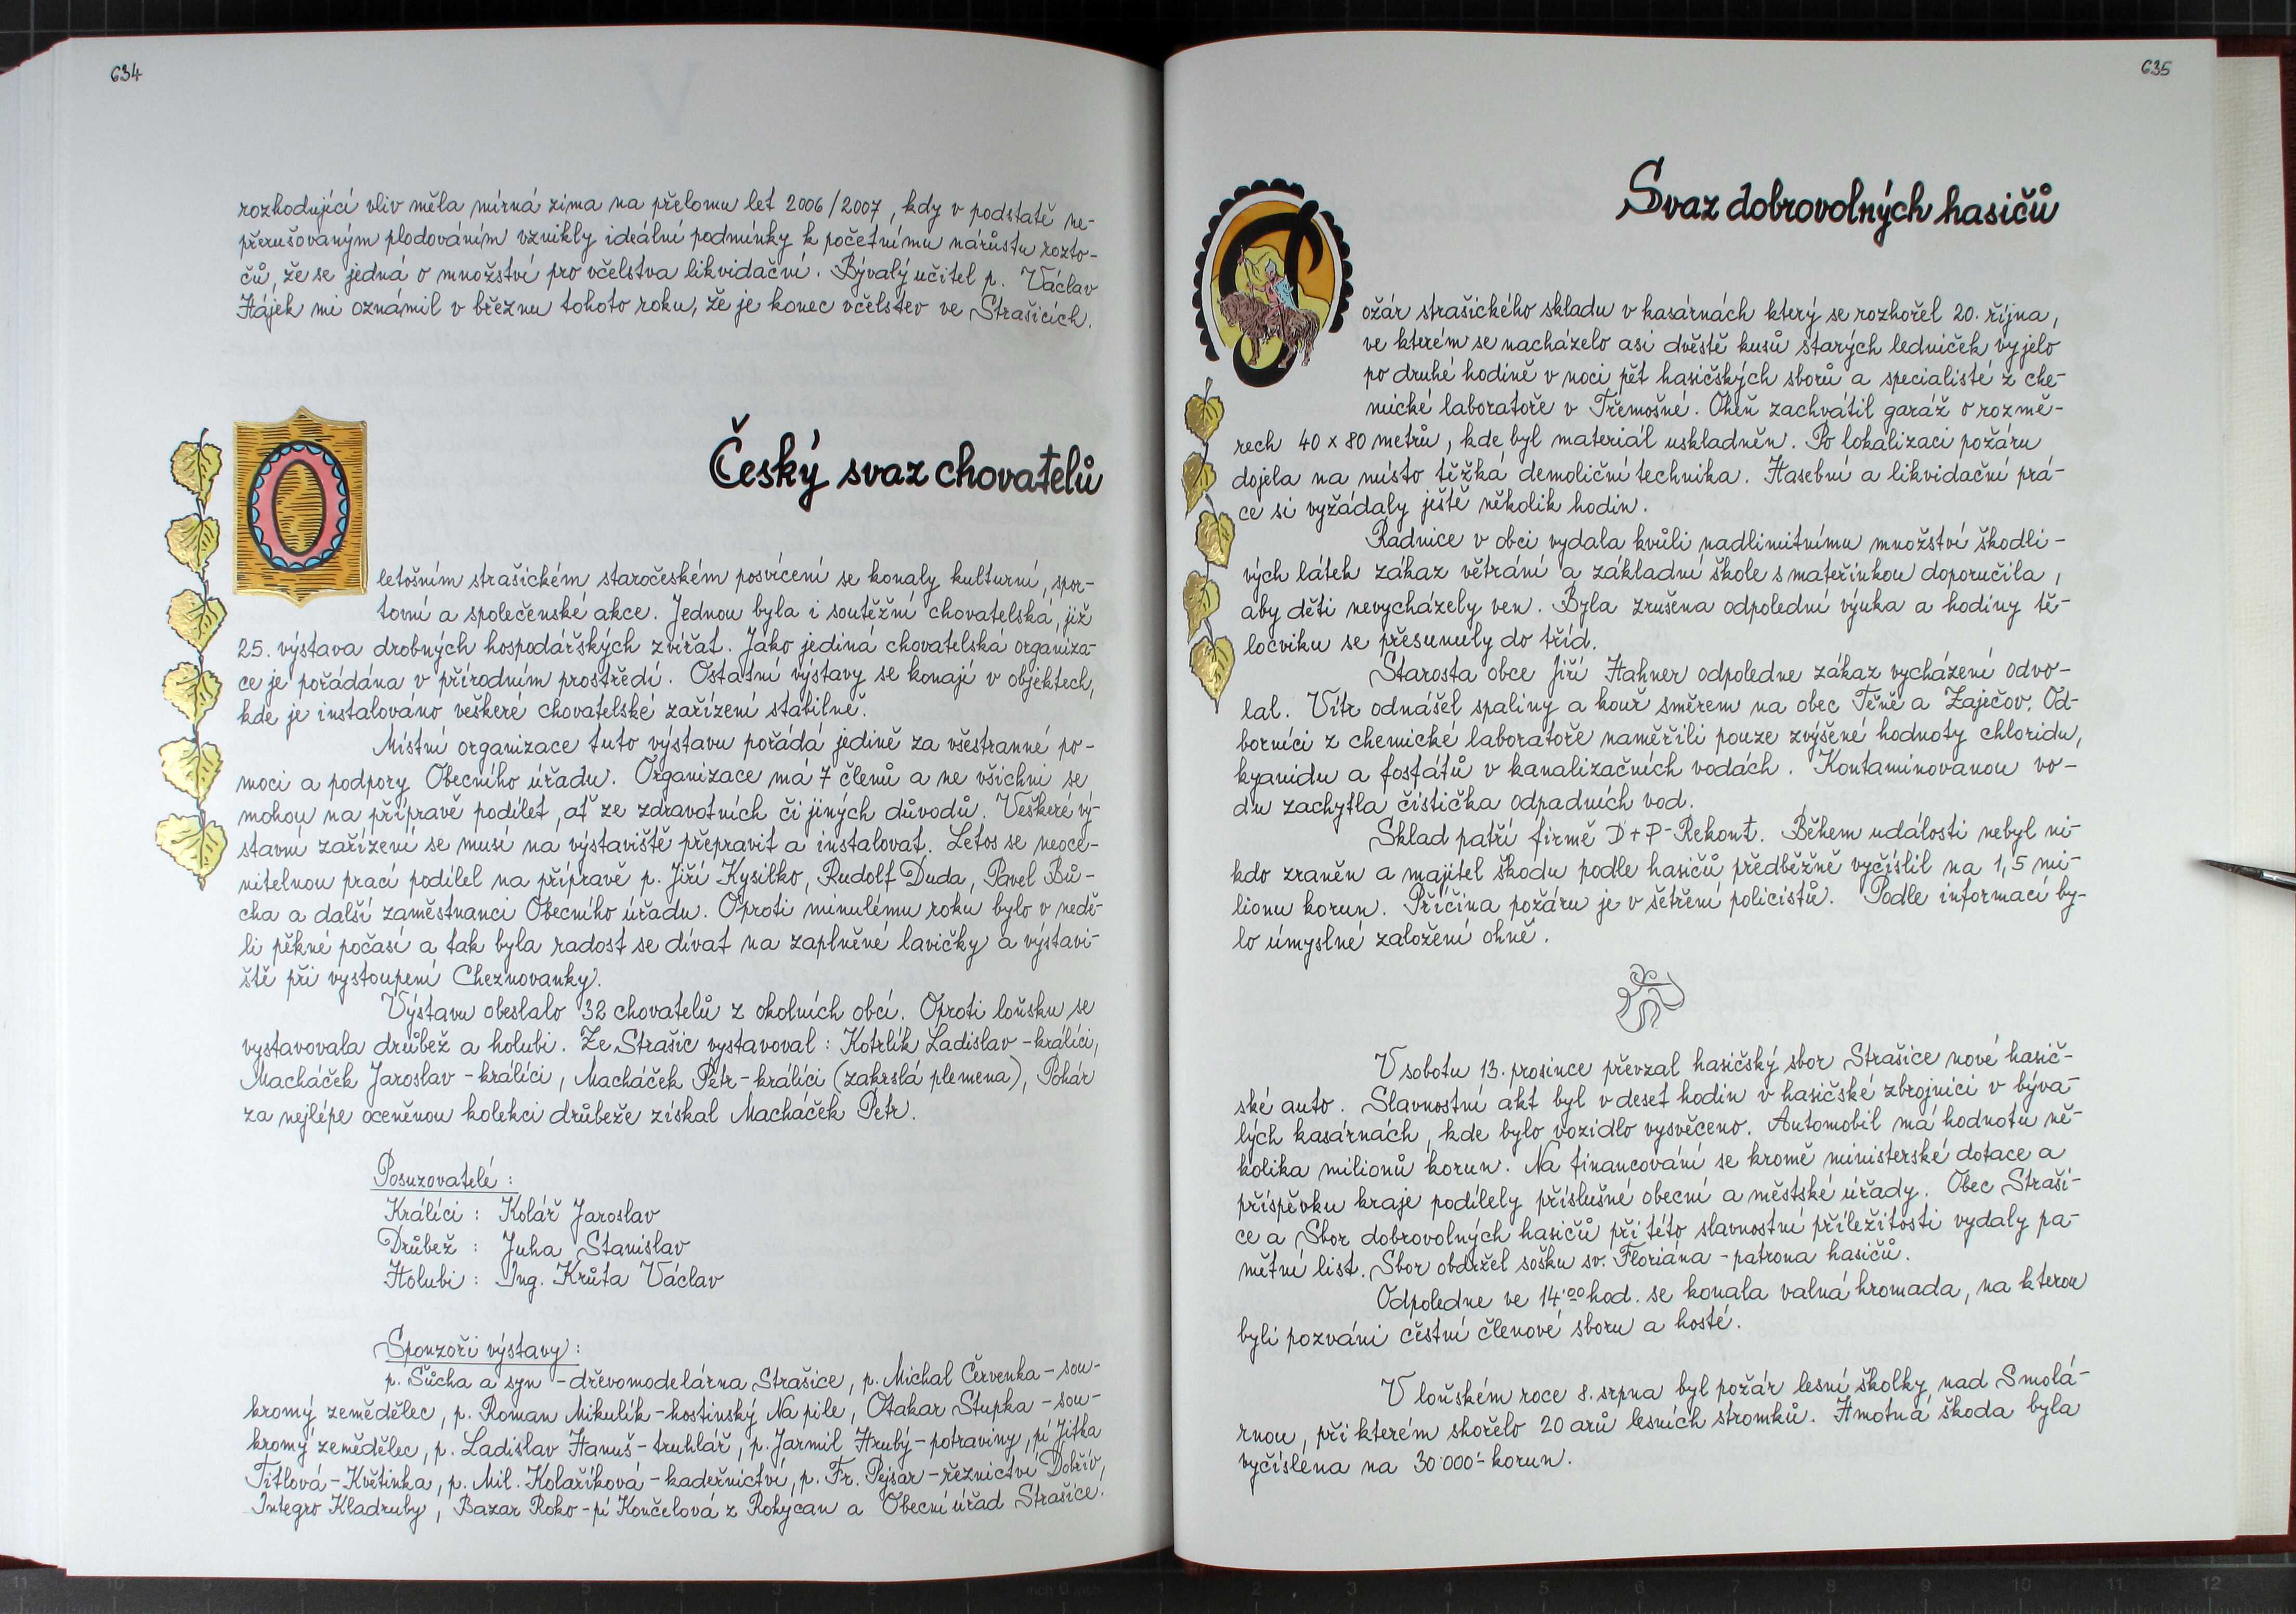 634
rozhodující vliv měla mírná zima na přelomu let 2006/2007, kdy v podstatě ne-
přerušovaným plodováním vznikly ideální podmínky k početnímu nárůstu rozto-
čů, že se jedná o množství pro včelstva likvidační. Bývalý učitel p. Václav
Hájek mi oznámil v březnu tohoto roku, že je konec včelstev ve Strašicích.
Český svaz chovatelů
O
letošním strašickém staročeském posvícení se konaly kulturní, spor-
tovní a společenské akce. Jednou byla i soutěžní chovatelská, již
25. výstava drobných hospodářských zvířat. Jako jediná chovatelská organiza-
ce je pořádána v přírodním prostředí. Ostatní výstavy se konají v objektech,
kde je instalováno veškeré chovatelské zařízení stabilně.
Místní organizace tuto výstavu pořádá jedině za všestranné po-
moci a podpory Obecního úřadu. Organizace má 7 členů a ne všichni se
mohou na přípravě podílet, ať ze zdravotních či jiných důvodů. Veškeré vý-
stavní zařízení se musí na výstaviště přepravit a instalovat. Letos se neoce-
nitelnou prací podílel na přípravě p. Jiří Kysilko, Rudolf Duda, Pavel Bů-
cha a další zaměstnanci Obecního úřadu. Oproti minulému roku bylo v nedě-
li pěkné počasí a tak byla radost se dívat na zaplněné lavičky a výstavi-
ště při vystoupení Cheznovanky.
Výstavu obeslalo 32 chovatelů z okolních obcí. Oproti loňsku se
vystavovala drůbež a holubi. Ze Strašic vystavoval: Kotrlík Ladislav - králíci,
Macháček Jaroslav - králíci, Macháček Petr - králíci (zakrslá plemena), Pohár
za nejlépe oceněnou kolekci drůbeže získal Macháček Petr.
Posuzovatelé:
Králíci: Kolář Jaroslav
Drůbež: Juha Stanislav
Holubi: Ing. Krůta Václav
Sponzoři výstavy:
p. Sůcha a syn - dřevomodelárna Strašice, p. Michal Červenka - sou-
kromý zemědělec, p. Roman Mikulík - hostinský Na pile, Otakar Stupka - sou-
kromý zemědělec, p. Ladislav Hanuš - truhlář, p. Jarmil Hrubý - potraviny, pí Jitka
Titlová - Květinka, p. Mil. Kolaříková - kadeřnictví, p. Fr. Pejsar - řeznictví Dobřív,
Integro Kladruby, Bazar Roko - pí Končelová z Rokycan a Obecní úřad Strašice.
635
Svaz dobrovolných hasičů
P
ožár strašického skladu v kasárnách který se rozhořel 20. října,
ve kterém se nacházelo asi dvěstě kusů starých ledniček vyjelo
po druhé hodině v noci pět hasičských sborů a specialisté z che-
mické laboratoře v Třemošné. Oheň zachvátil garáž o rozmě-
rech 40 x 80 metrů, kde byl materiál uskladněn. Po lokalizaci požáru
dojela na místo těžká demoliční technika. Hasební a likvidační prá-
ce si vyžádaly ještě několik hodin.
Radnice v obci vydala kvůli nadlimitnímu množství škodli-
vých látek zákaz větrání a základní škole s mateřinkou doporučila,
aby děti nevycházely ven. Byla zrušena odpolední výuka a hodiny tě-
locviku se přesunuly do tříd.
Starosta obce Jiří Hahner odpoledne zákaz vycházení odvo-
lal. Vítr odnášel spaliny a kouř směrem na obec Těně a Zaječov. Od-
borníci z chemické laboratoře naměřili pouze zvýšené hodnoty chloridu,
kyanidu a fosfátů v kanalizačních vodách. Kontaminovanou vo-
du zachytla čistička odpadních vod.
Sklad patří firmě D+P-Rekont. Během události nebyl ni-
kdo zraněn a majitel škodu podle hasičů předběžně vyčíslil na 1,5 mi-
lionu korun. Příčina požáru je v šetření policistů. Podle informací by-
lo úmyslné založení ohně.
V sobotu 13. prosince převzal hasičský sbor Strašice nové hasič-
ské auto. Slavnostní akt byl v deset hodin v hasičské zbrojnici v býva-
lých kasárnách, kde bylo vozidlo vysvěceno. Automobil má hodnotu ně-
kolika milionů korun. Na financování se kromě ministerské dotace a
příspěvku kraje podílely příslušné obecní a městské úřady. Obec Straši-
ce a Sbor dobrovolných hasičů při této slavnostní příležitosti vydaly pa-
mětní list. Sbor obdržel sošku sv. Floriána - patrona hasičů.
Odpoledne ve 14.00 hod. se konala valná hromada, na kterou
byli pozváni čestní členové sboru a hosté.
V loňském roce 8. srpna byl požár lesní školky nad Smolá-
rnou, při kterém shořelo 20 arů lesních stromků. Hmotná škoda byla
vyčíslena na 30.000- korun.